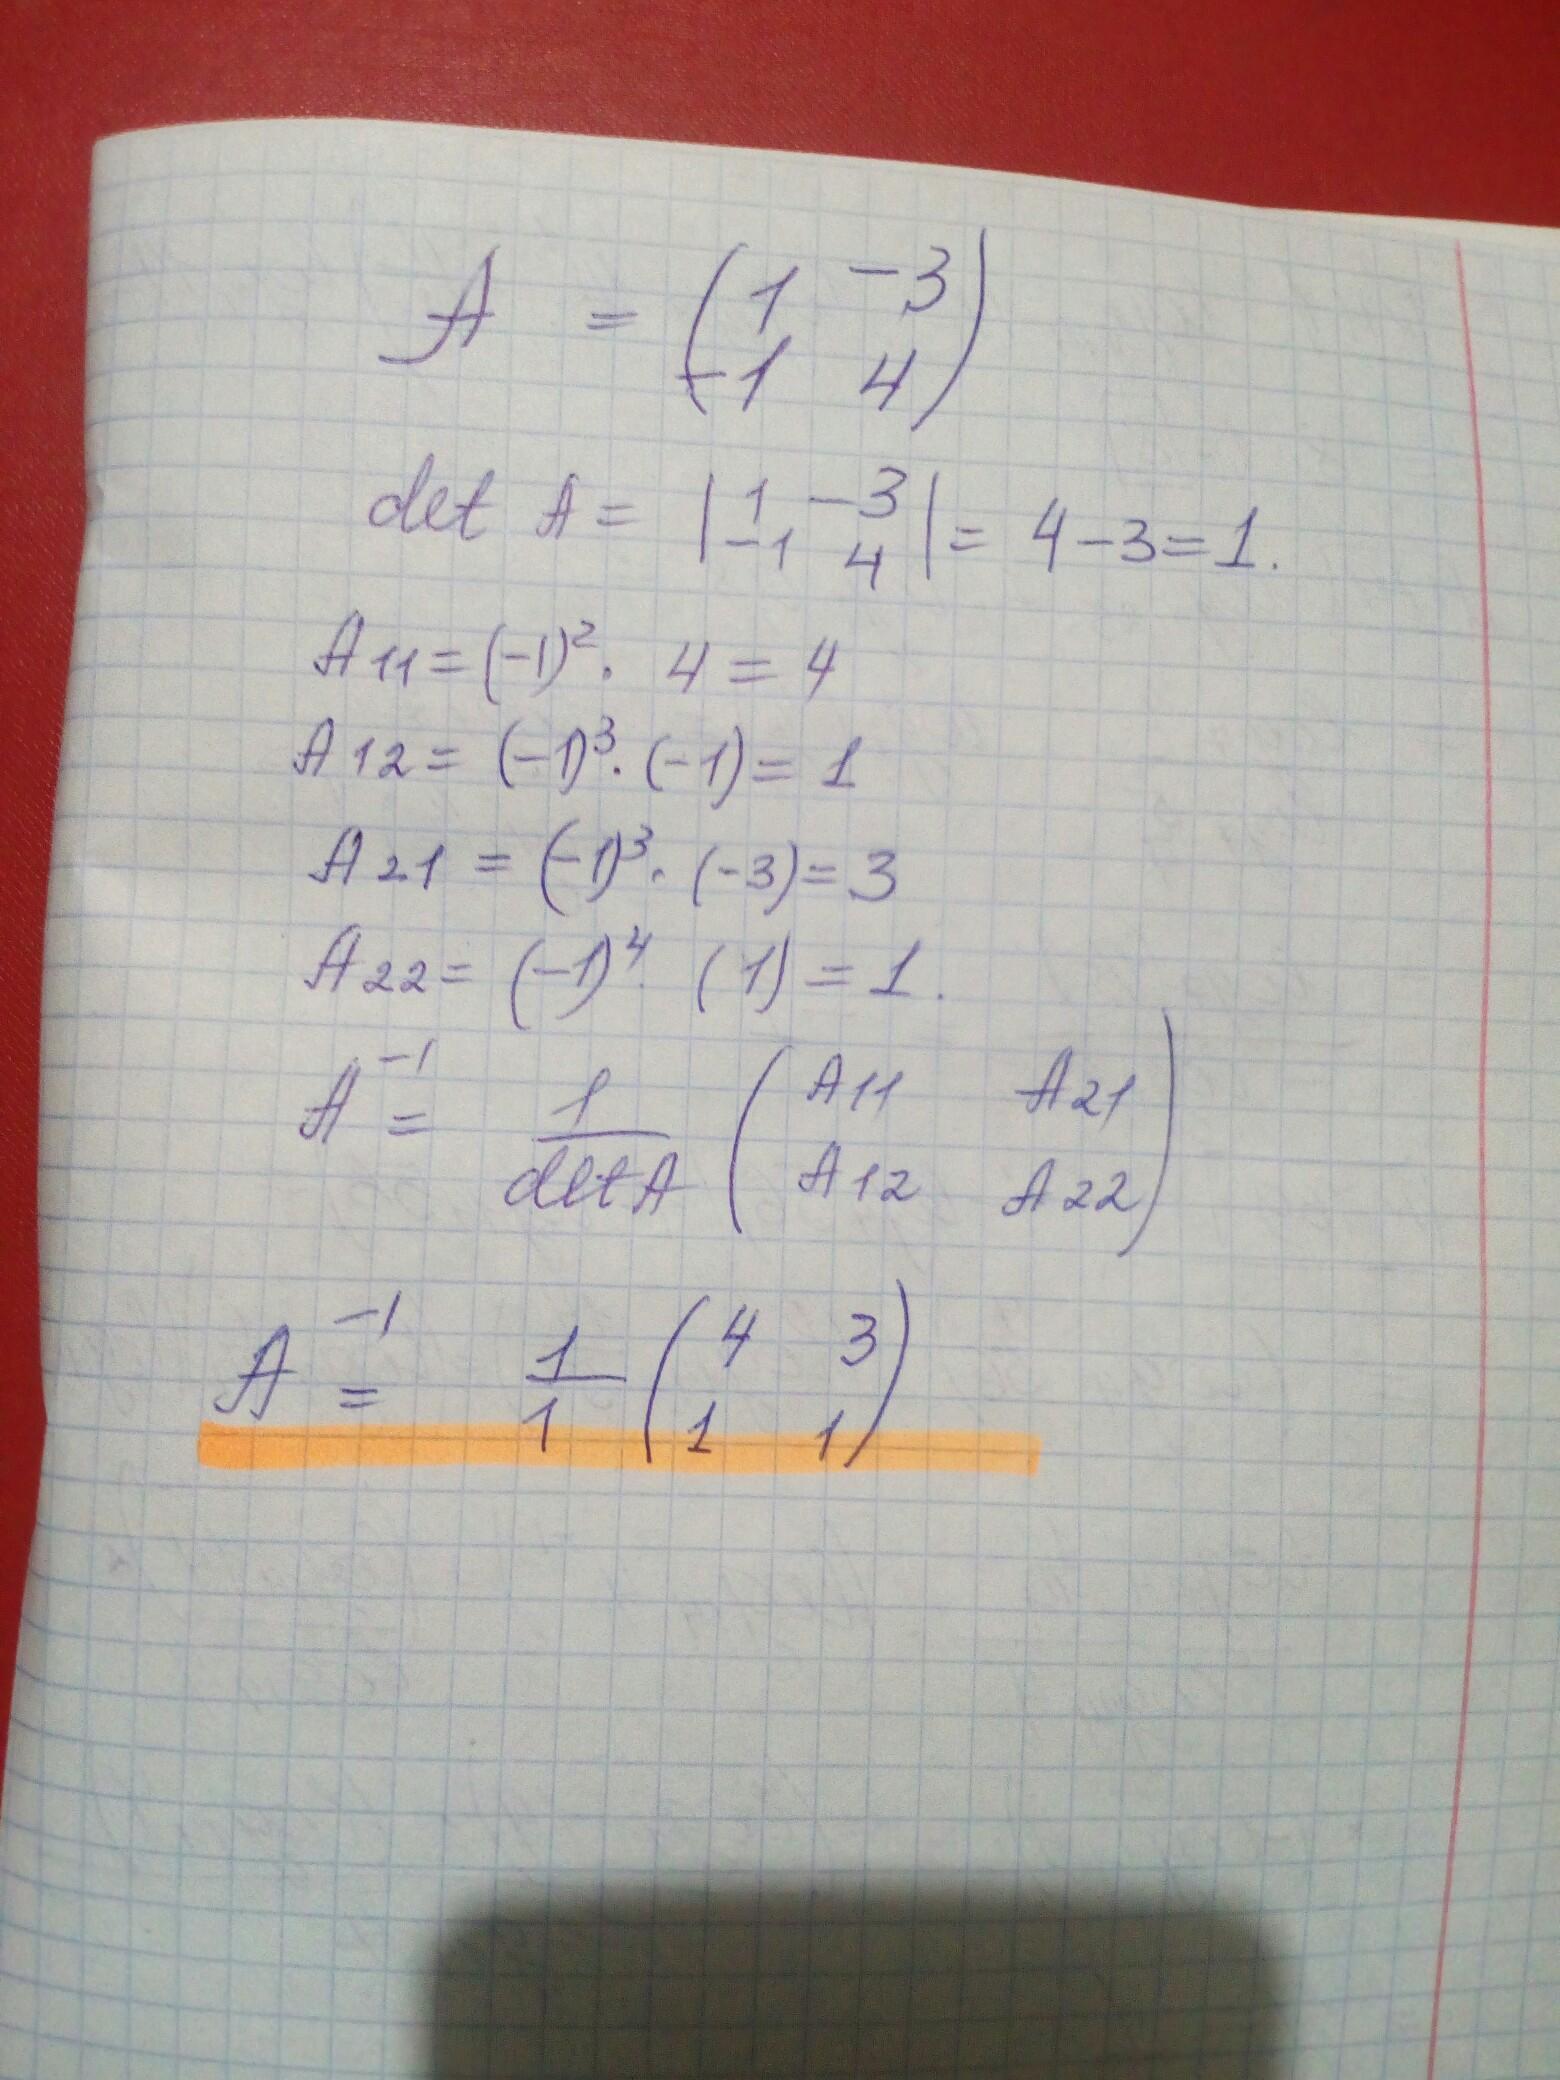 A = ( 1 -3
-1 4 )
det A = | 1 -3
-1 4 | = 4-3=1.
A11 = (-1)². 4 = 4
A12 = (-1)³. (-1) = 1
A21 = (-1)³. (-3) = 3
A22 = (-1)⁴. (1) = 1.
A⁻¹ = 1/detA ( A11 A21
A12 A22 )
A⁻¹ = 1/1 ( 4 3
1 1 )